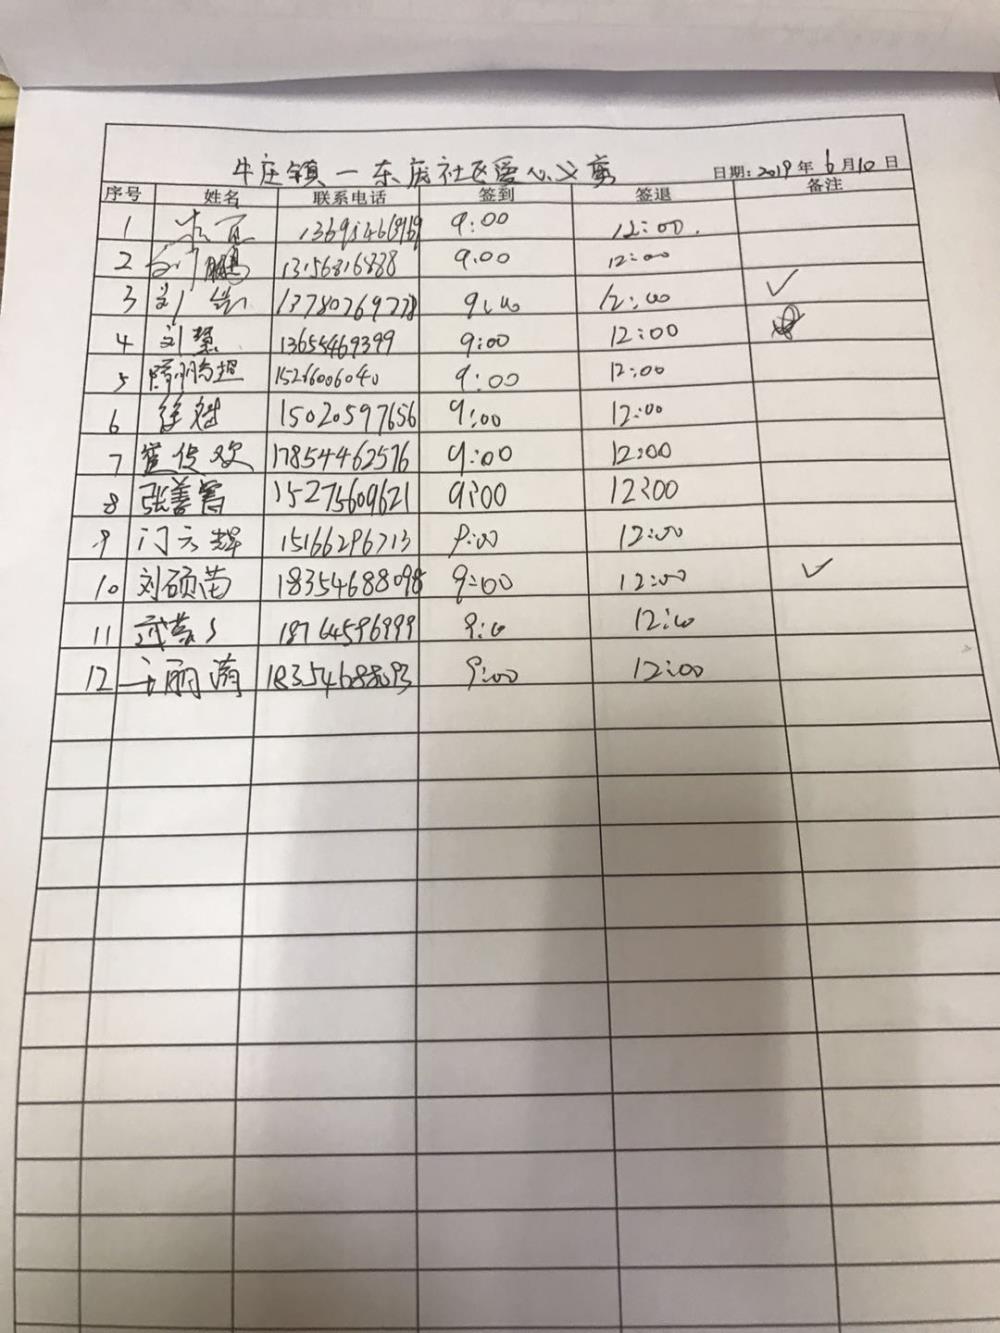 牛庄镇一东庞社区爱心义剪
日期：2019年6月10日
序号 姓名 联系电话 签到 签退 备注
1 9:00 12:00.
2 鹏 13156816888 9:00 12:00
3 刘 13780769278 9:00 12:00 ✓
4 刘慧 13655469399 9:00 12:00
5 隋鹏坦 15266006040 9:00 12:00
6 徐 15020597656 9:00 12:00
7 崔传欢 17854462576 9:00 12:00
8 张善霄 15275609621 9:00 12:00
9 门云辉 15166296713 9:00 12:00
10 刘硕苗 18354688098 9:00 12:00 ✓
11 18764596999 9:00 12:00
12 丽 18354688093 9:00 12:00